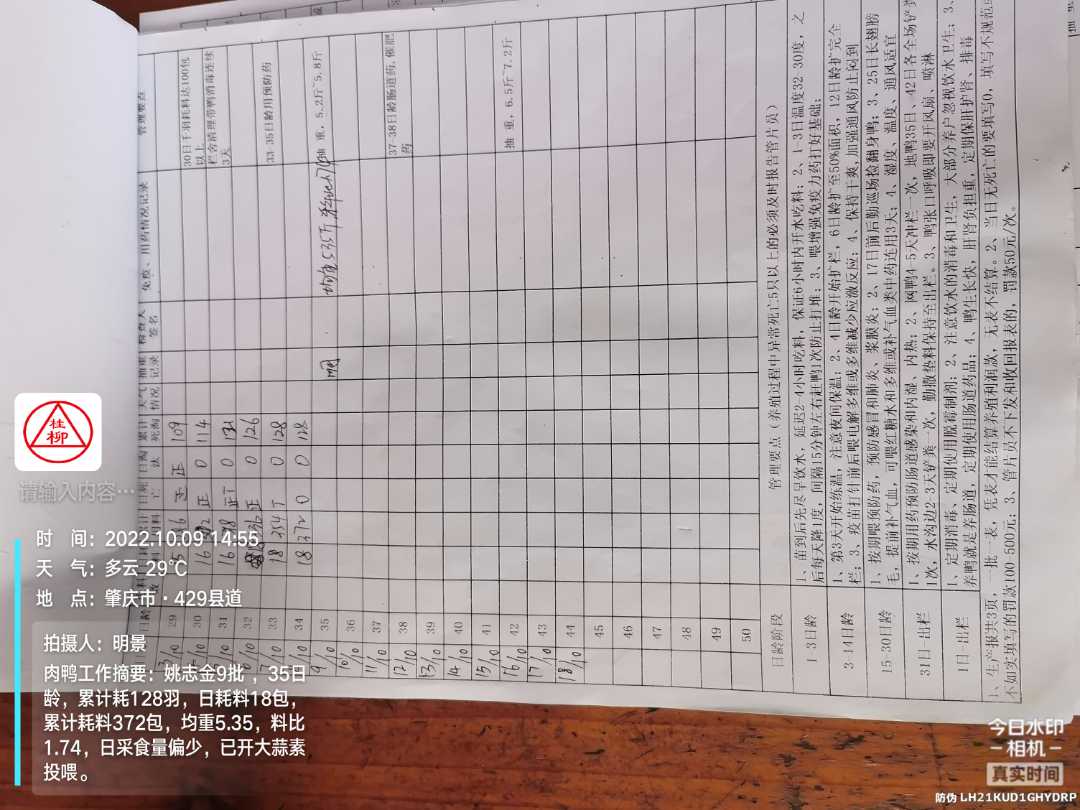 管理要点
免疫、用药情况记录
检查人签名
抽重记录
天气情况
累计死淘
日淘汰
日龄
30日千羽耗料达100包以上
栏舍清理带鸭消毒连续3天
33-35日龄用预防药
抽 重, 5.2斤~5.8斤
37-38日龄肠道药,催肥药
抽 重, 6.5斤~7.2斤
29 正 正 109
30 正 0 114
31 正 0 121
32 正 0 126
33 18 354 0 128
34 18 372 0 0 128
9/10 35 晴 均重5.35斤
10/10 36
11/10 37
12/10 38
13/10 39
14/10 40
15/10 41
16/10 42
17/10 43
18/10 44
45
46
47
48
49
50
日龄阶段 管理要点(养殖过程中异常死亡5只以上的必须及时报告管片员)
1-3日龄 1、苗到后先尽早饮水,延迟2-4小时吃料,保证6小时内开水吃料;2、1-3日温度32-30度,之
后每天降1度,间隔15分钟左右赶鸭1次防止打堆;3、喂增强免疫力药打好基础;
3-14日龄 1、第3天开始练温,注意夜间保温;2、4日龄开始扩栏,6日龄扩至50%面积,12日龄扩完全
栏;3、疫苗打针前后喂电解多维或多维减少应激反应;4、保持干爽,加强通风防止闷到
15-30日龄 1、按期喂预防药,预防感冒和肺炎、浆膜炎;2、17日前后勤巡场捡翻身鸭;3、25日长翅膀
毛,提前补气血,可喂红糖水和多维或补气血类中药连用3天;4、湿度、温度、通风适宜
31日-出栏 1、按期用药预防肠道感染和内湿、内热;2、网鸭4-5天冲栏一次,地鸭35日、42日各全场铲粪
1次,水沟边2-3天铲粪一次,勤撒垫料保持至出栏。3、鸭张口呼吸即要开风扇、喷淋
1日-出栏 1、定期消毒、定期使用脱霉制剂;2、注意饮水的消毒和卫生,大部分养户忽视饮水卫生;3、
养鸭就是养肠道,定期使用肠道药品;4、鸭生长快,肝肾负担重,定期保肝护肾、排毒
1、生产报共3页,一批一表,凭表才能结算养殖利润款,无表不结算。2、当日无死亡的要填写0,填写不规范或
不如实填写的罚款100-500元;3、管片员不下发和收回报表的,罚款50元/次。
桂柳
请输入内容…
时 间：2022.10.09 14:55
天 气：多云 29℃
地 点：肇庆市·429县道
拍摄人：明景
肉鸭工作摘要：姚志金9批 ，35日
龄，累计耗128羽，日耗料18包，
累计耗料372包，均重5.35，料比
1.74，日采食量偏少，已开大蒜素
投喂。
今日水印
-相机-
真实时间
防伪 LH21KUD1GHYDRP